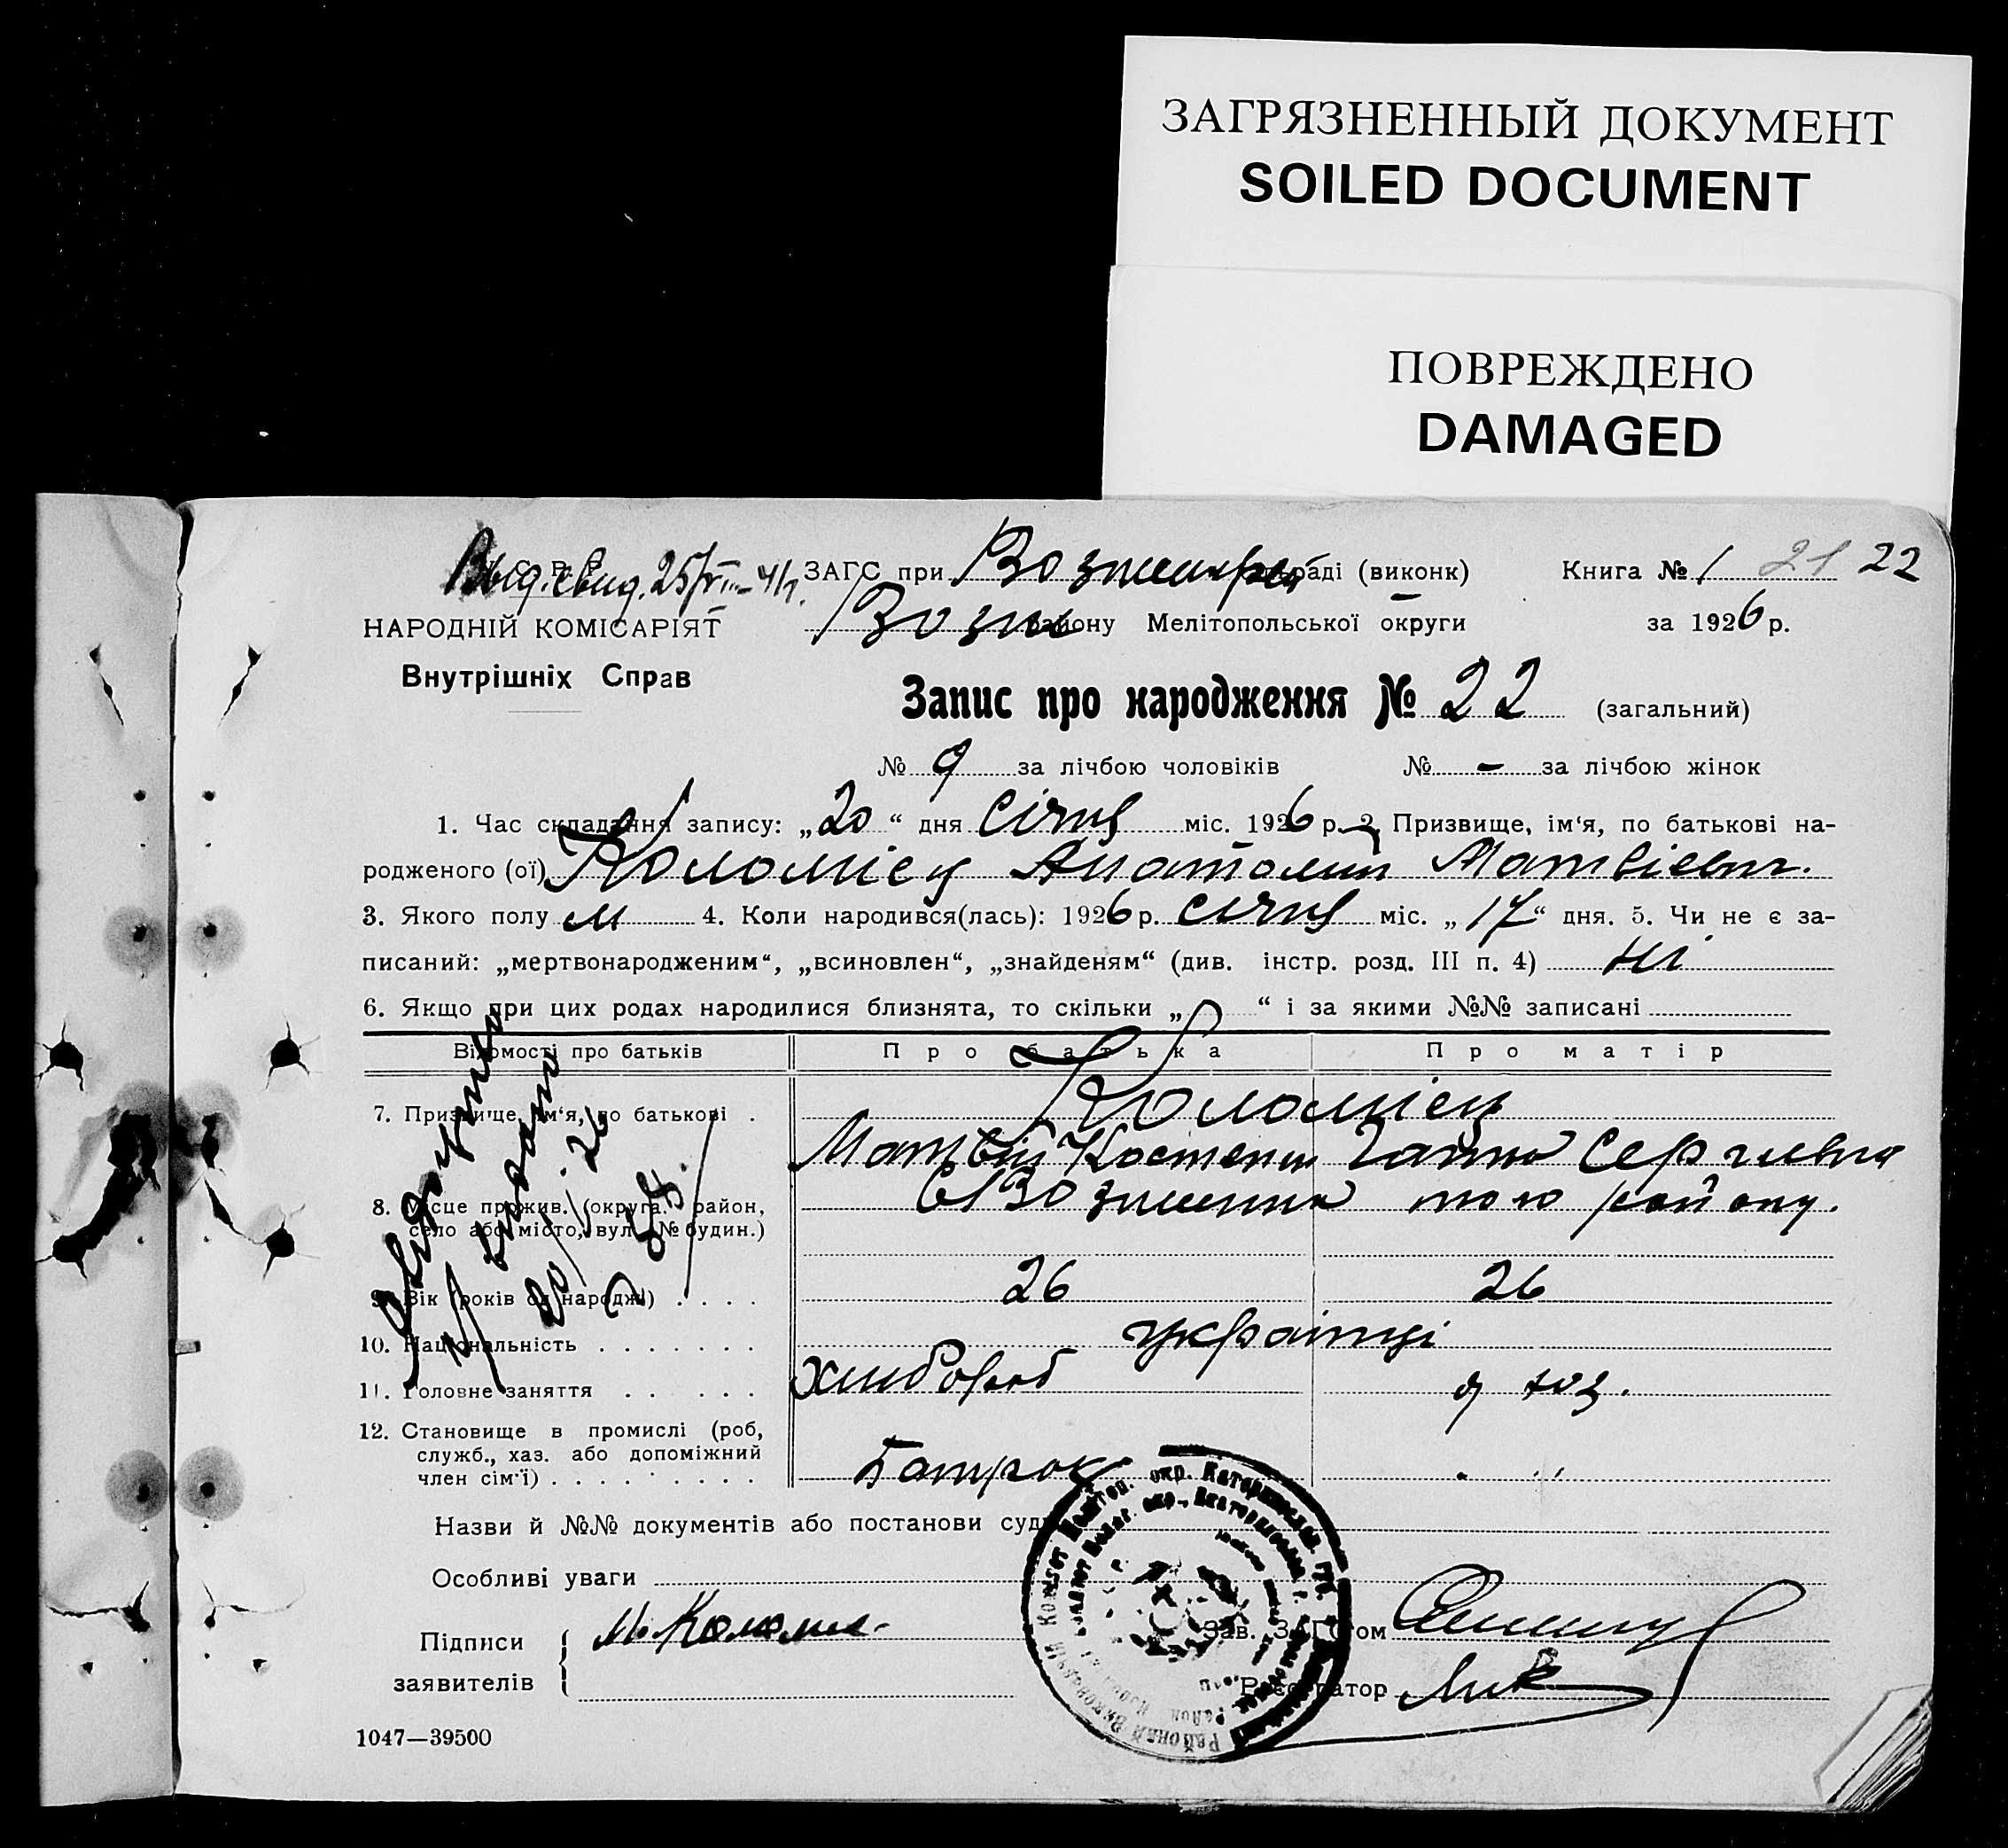 ЗАГРЯЗНЕННЫЙ ДОКУМЕНТ
SOILED DOCUMENT
ПОВРЕЖДЕНО
DAMAGED
Выд. свид. ЗАГС при раді (виконк) Книга № 1 21 22
НАРОДНІЙ КОМІСАРІЯТ Возн району Мелітопольської округи за 1926 р.
Внутрішніх Справ
Запис про народження № 22 (загальний)
№ 9 за лічбою чоловіків № - за лічбою жінок
1. Час складання запису: „20“ дня Січня міс. 1926 р. 2. Призвище, ім‘я, по батькові на-
родженого (ої) Коломієц Анатолий Матвієвич.
3. Якого полу М 4. Коли народився(лась): 1926 р. Січня міс. „17“ дня. 5. Чи не є за-
писаний: „мертвонародженим“, „всиновлен“, „знайденям“ (див. інстр. розд. III п. 4) ні
6. Якщо при цих родах народилися близнята, то скільки „ “ і за якими №№ записані
Відомості про батьків Про батька Про матір
7. Призвище, ім‘я, по батькові . Коломієць
Матвій Ганна Сергиевна
8. Місце прожив. (округа, район, того району.
село або місто, вул. № будин.)
9. Вік (років од народж.) . . . . 26 26
10. Національність . . . . . . . українці
11. Головне заняття . . . . . . Хлібороб
12. Становище в промислі (роб,
служб., хаз. або допоміжний
член сім‘ї) . . . . . . . . . Батрак
Назви й №№ документів або постанови суду
Особливі уваги
Підписи М. Коломие. Зав. ЗАГСом
заявителів Реєстратор
1047—39500